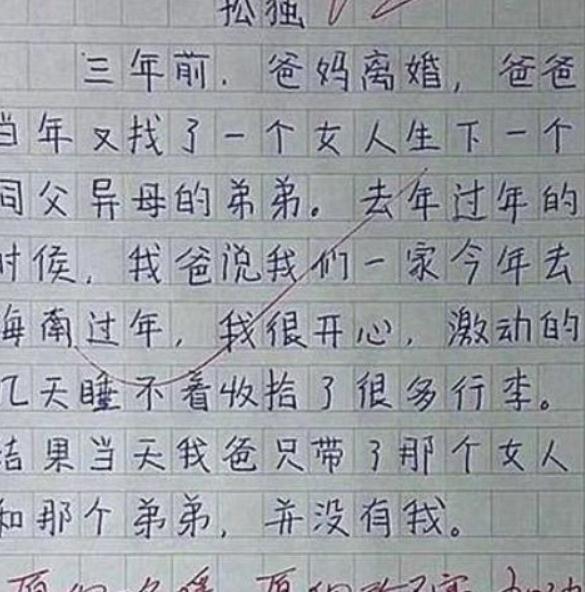 孤独
三年前. 爸妈离婚, 爸爸
当年又找了一个女人生下一个
同父异母的弟弟。去年过年的
时候, 我爸说我们一家今年去
海南过年, 我很开心, 激动的
几天睡不着收拾了很多行李。
结果当天我爸只带了那个女人
和那个弟弟, 并没有我。